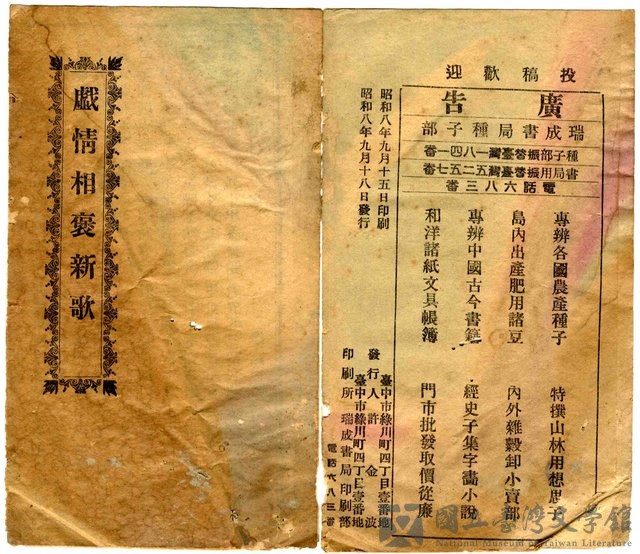 戲情相褒新歌
投稿歡迎
廣告
瑞成書局種子部
種子部振替臺灣一八四一番
書局用振替臺灣五二五七番
電話六八三番
專辨各國農產種子 特撰山林用想思子
島內出產肥用諸豆 內外雜穀卸小賣部
專辨中國古今書籍 經史子集字畫小說
和洋諸紙文具帳簿 門市批發取價從廉
昭和八年九月十五日印刷
昭和八年九月十八日發行
臺中市綠川町四丁目壹番地
發行人 許金波
臺中市綠川町四丁目壹番地
印刷所 瑞成書局印刷部
電話六八三番
國立臺灣文學館
National Museum of Taiwan Literature